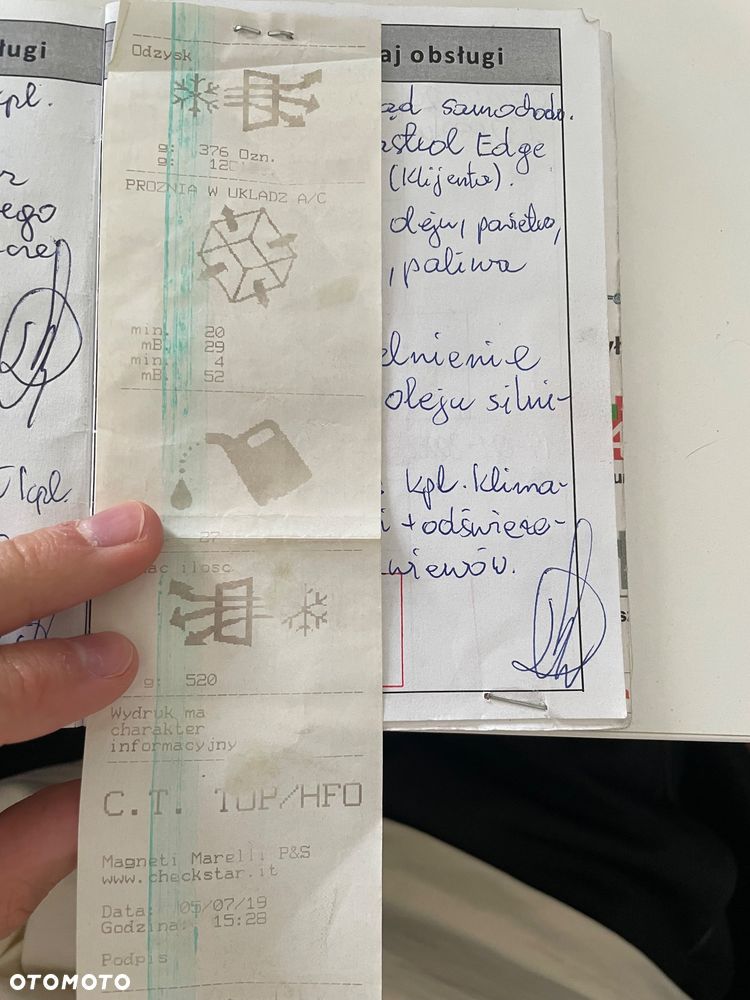 Odzysk
g: 376 Ozn.
g: 12
PROZNIA W UKLADZ A/C
min. 20
mB. 29
min. 4
mB. 52
27
ilosc
g: 520
Wydruk ma
charakter
informacyjny
C.T. TOP/HFO
Magneti Marelli P&S
www.checkstar.it
Data: 05/07/19
Godzina: 15:28
Podpis
ługi
aj obsługi
kpl.
ego
samochodo.
Edge
(Klijenta).
oleju, powietrza,
, paliwa
ełnienie
oleju silni-
kpl. Klima-
i + odświeżo-
wiewów.
kpl.
OTOMOTO